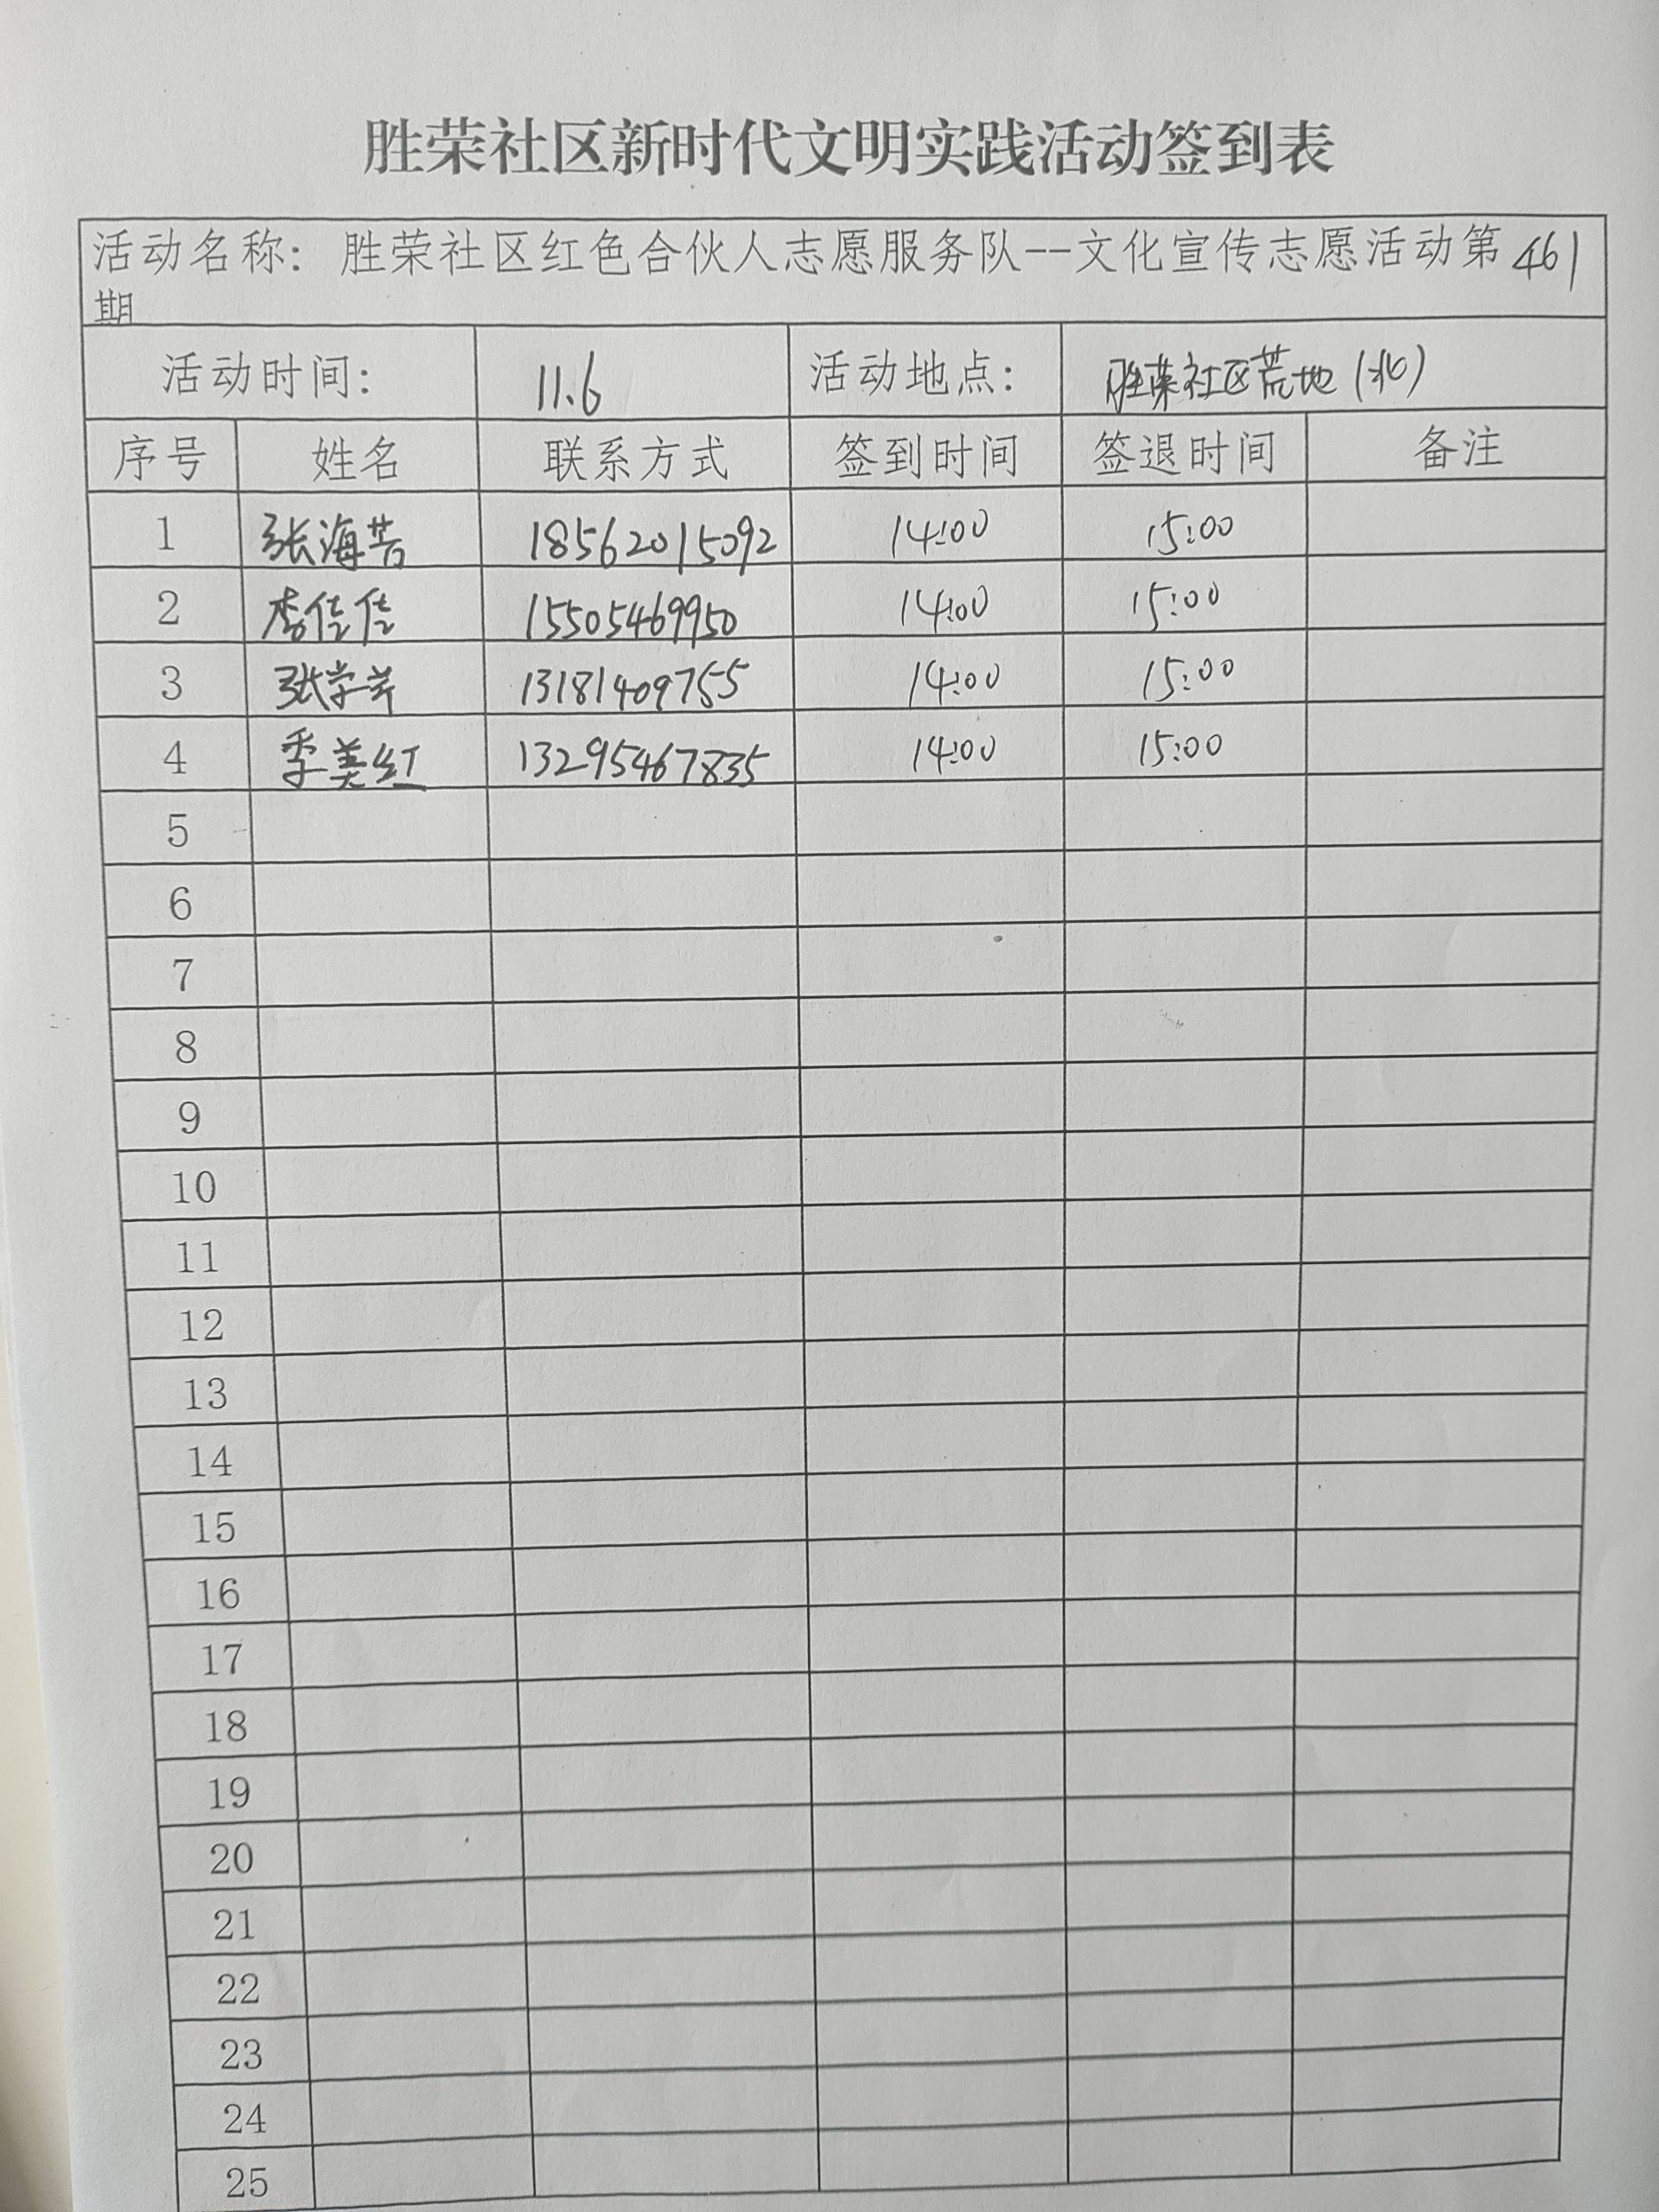 胜荣社区新时代文明实践活动签到表
活动名称：胜荣社区红色合伙人志愿服务队--文化宣传志愿活动第461
期
活动时间： 11.6 活动地点： 胜荣社区荒地（北）
序号 姓名 联系方式 签到时间 签退时间 备注
1 张海 18562015092 14:00 15:00
2 李佳佳 15505469950 14:00 15:00
3 张学芹 13181409755 14:00 15:00
4 季美红 13295467835 14:00 15:00
5
6
7
8
9
10
11
12
13
14
15
16
17
18
19
20
21
22
23
24
25